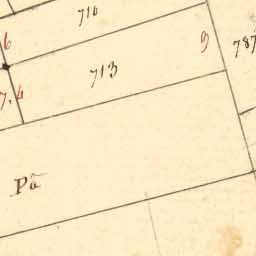 716
6
9
787
713
7.4
Pã